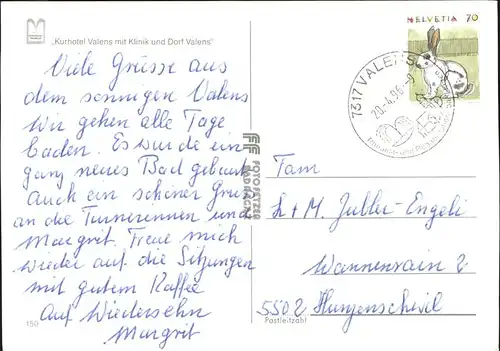 „Kurhotel Valens mit Klinik und Dorf Valens"
HELVETIA 70
7317 VALENS
20.-4.96.-9
Viele Grüsse aus
dem sonnigen Valens
Wir gehen alle Tage
baden. Es wurde ein
ganz neues Bad gebaut
Auch ein schöner Gruss
an die Turnerinnen und
Margrit. Freue mich
wieder auf die Sitzungen
mit gutem Kaffee
Auf Wiedersehn
Margrit
150
FOTO FETZER
BAD RAGAZ
Fam
H + M. Juller-Engeli
Wannenrain 2
5502 Hunzenschwil
Postleitzahl